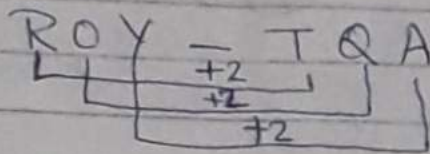 ROY - TQA
+2
+2
+2